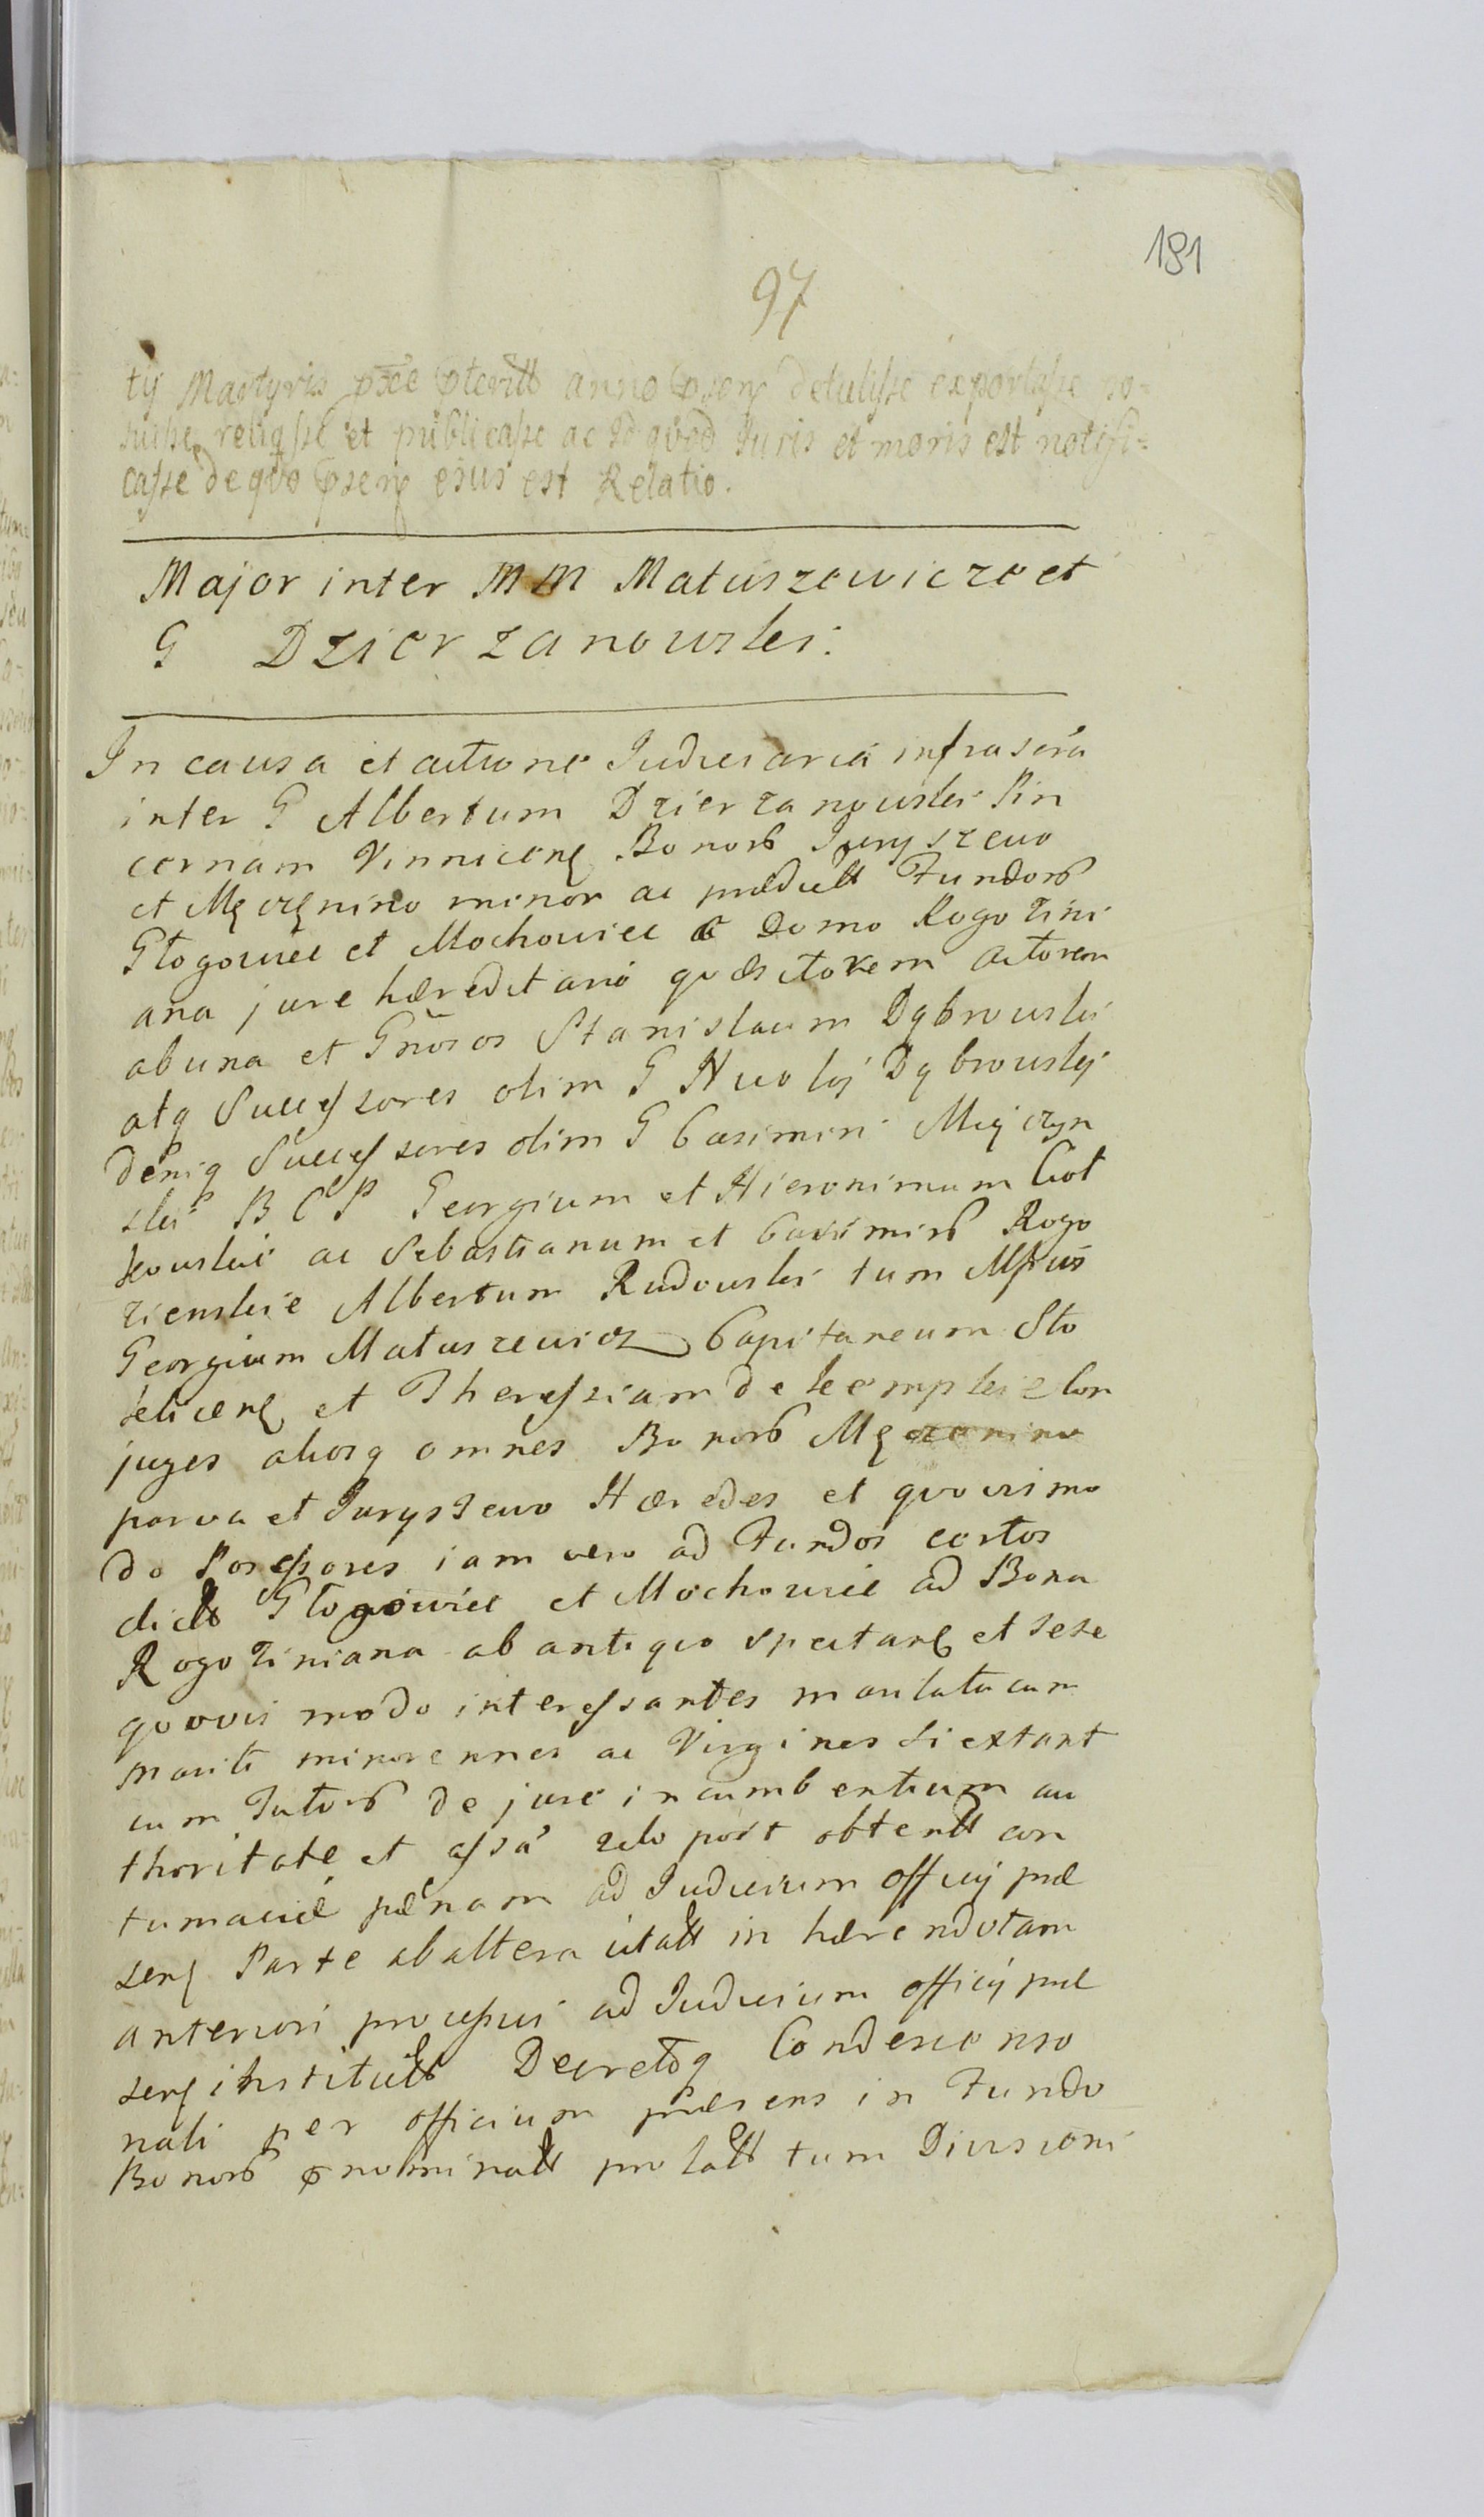 181
97
tÿ Martyris anno detulisse exportasse po=
suisse reliqsse et publicasse ac Id quod Iuris et moris est notifi=
casse de quo ejus est Relatio.
Major inter M M Matuszewicze et
G Dzierzanowski.
In causa et actione Iudiciaria infrascra
inter G Albertum Dzierzanowski Pin
cernam Vinnicen Bonor Juryszewo
et Męczęnino minor ac prædict Fundor
Głogowiec et Mochowiec a Domo Rogozini
ana jure hæreditario quæsitorem actorem
ab una et Gnosos Stanislaum Dąbrowski
atq Successores olim G Dąbrowskÿ
deniq Successores olim G Casimiri Mięczyn
ski B C P Georgium et Hieronimum Cioł
kowskie ac Sebastianum et Casimir Rogo
zienskie Albertum Rudowski tum Mfcus
Georgium Matuszewicz Capitaneum Sto
kliscen et Theressiam de Kempskie Con
juges aliosq omnes Bonor Męczenino
parva et Juryszewo Hæredes et quovismo
do Possessores iam vero ad Fundos certos
dict Głogowiec et Mochowiec ad Bona
Rogoziniana ab antiquo spectan et sese
quovis modo interessantes maritatas cum
Maritis minorennes ac Virgines si extant
cum Tutor de jure incumbentium au
thoritate et assa post obtent con
tumaciæ pænam ad Iudicium officÿ præ
sens Parte ab altera citatt in hærendo tam
anteriori processui ad Iudicium officÿ præ
sens institutt Decretoq Condescenso
nali per officium præsens in Fundo
Bonor nominatt prolatt tum Divisioni